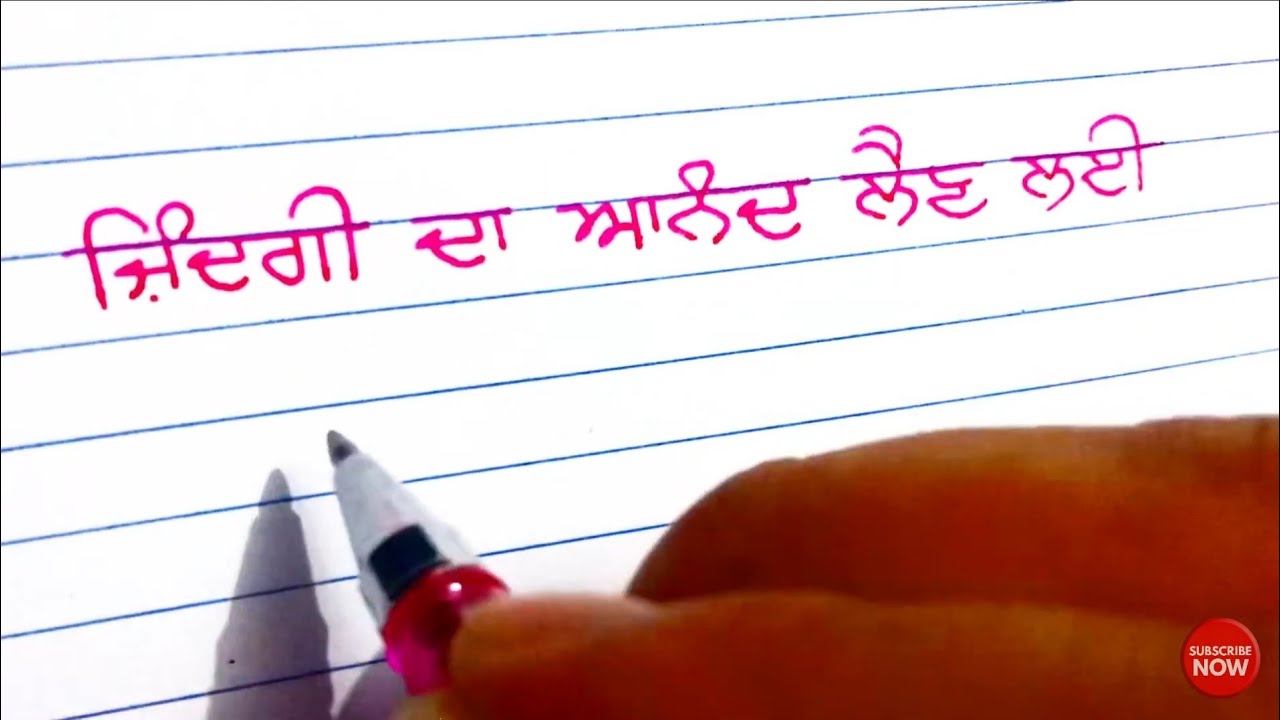 ਜ਼ਿੰਦਗੀ ਦਾ ਆਨੰਦ ਲੈਣ ਲਈ
SUBSCRIBE
NOW